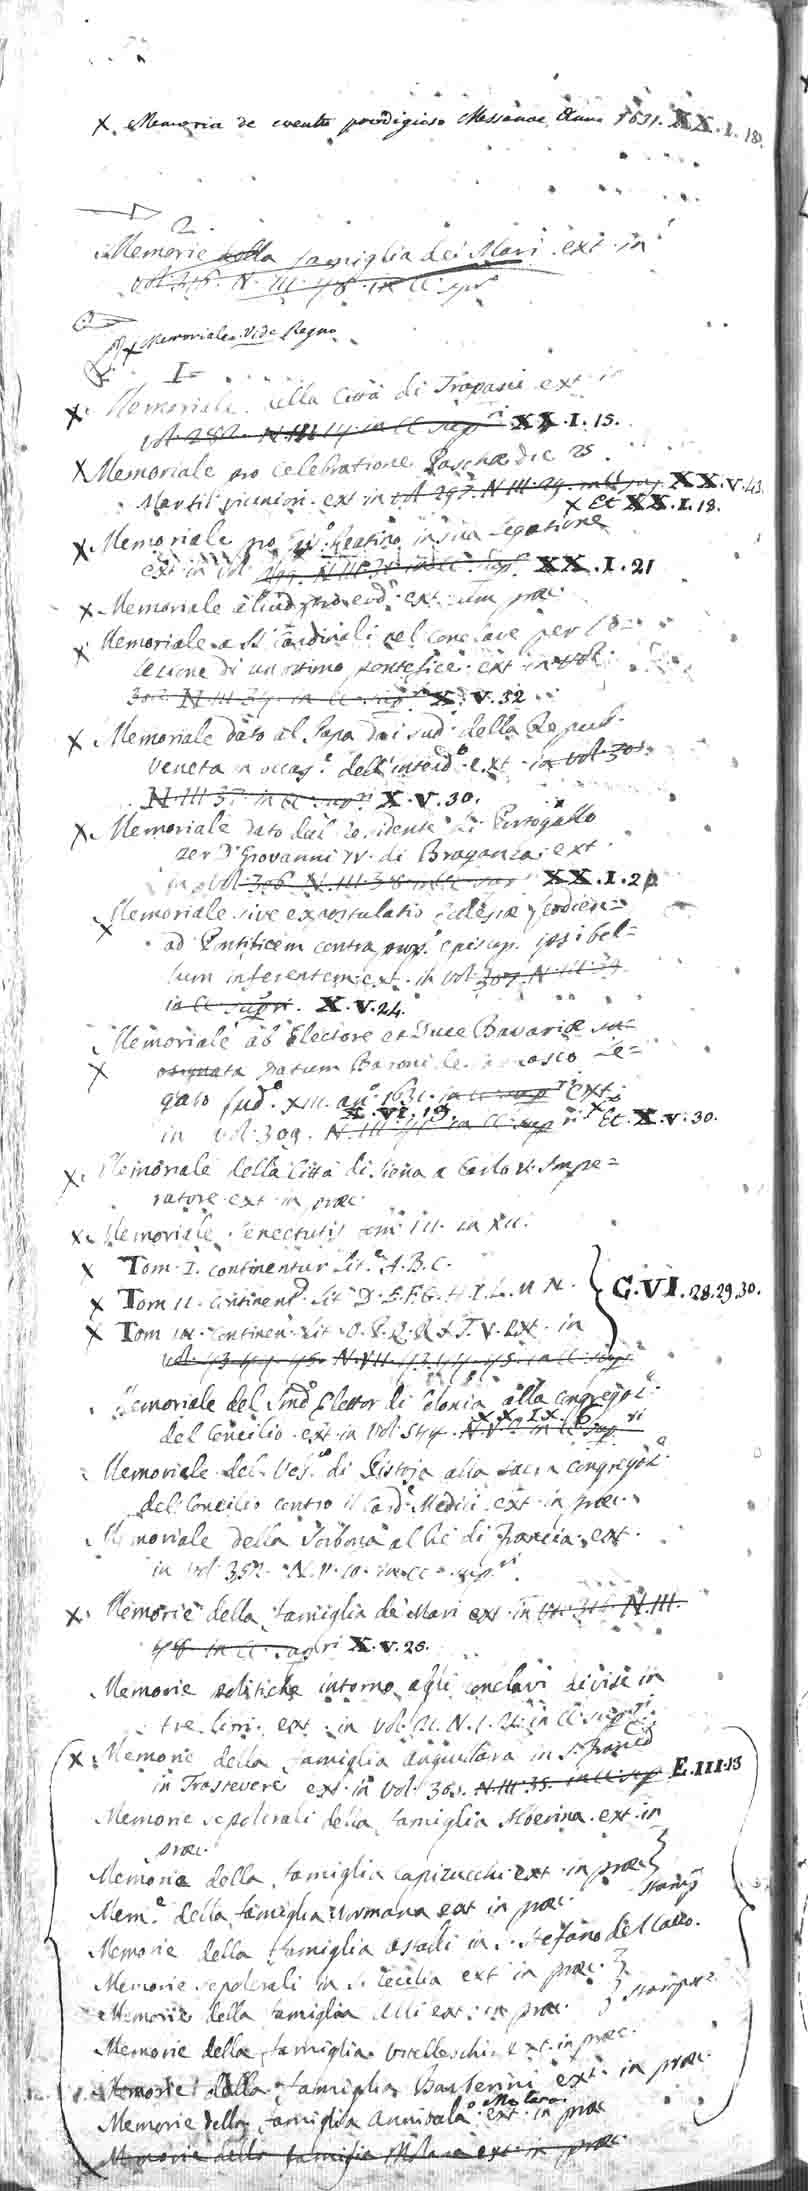 X. Memoria de eventu prodigioso Messanae Anno 1631. XX. I. 18.
2.
Memorie della famiglia dei Mari ext. in
vol. 316. N. III. 48. in cc. supri
X Memoriale. Vide Regno
I
X. Memoriale della Città di Trapani ext. in
vol. 282. N. III 14 in cc supri XX. I. 15.
X Memoriale pro celebratione Paschae die 25
Martii ext in vol 297. N III. 29. in cc sup XX. V. 43.
X Et XX. I. 18.
X Memoriale pro Reatino in sua legatione
ext. in vol. N III. in cc. supri XX. I. 21
X Memoriale aliud pro eod. ext. cum prae.
X Memoriale a SS Cardinali nel conclave per l'e=
lezione di un ottimo pontefice. ext. in vol.
302. N III 34. in cc. supri X. V. 32
X Memoriale dato al Papa dai sud. della Repub.
Veneta in occag.e dell'interdo. ext. in vol. 305.
N. III 37. in cc. supri X. V. 30.
X Memoriale dato dal Residente di Portogallo
per D. Giovanni IV. di Braganza. ext.
in vol 306 N. III. 38. in cc supri XX. I. 21
X Memoriale sive expostulatio Ecclesiae
ad Pontificem contra episcop. ipsi bel=
lum inferentem ext. in vol 307. N. III. 39
in cc supri. X. V. 24.
X Memoriale ab Electore et Duce Bavariae
datum Baroni Le=
gato Lud.o XIII. an.o 1631. in cc. supri ext.
X. VI. 19.
in vol. 309. N. III 41 in cc sup ri X Et. X. V. 30.
X. Memoriale della Città di Siena a Carlo V. Impe=
ratore ext. in prae.
X. Memoriale Senectutis tom. III. in XII.
X Tom. I. continentur Lit.a A. B. C.
X Tom II. Continent. Lit D. E. F. G. H. I. L. M. N. } G. VI. 28. 29. 30.
X Tom III. Continen. Lit. O. P. Q. R. S. T. V. ext. in
vol. 43. 44. 45. N. VII. 43. 44. 45. in cc. sup.
Memoriale del Elettor di Colonia alla Congregaz.e
XX. IX. 6
del Concilio. ext. in vol. 344. N. V. in cc sup ri
Memoriale del Ves.o di Pistoja alla sacra Congregaz.e
del Concilio contro il Card. Medici. ext. in prae.
Memoriale della Sorbona al Re di Francia. ext.
in vol. 352. N. V. 10. in cc. sup ri
X. Memorie della famiglia de Mari ext. in vol. 316. N. III.
48. in cc. supri X. V. 25.
Memorie politiche intorno agli conclavi divise in
tre libri. ext. in vol. 21. N. I. 21. in cc. supri.
X. Memorie della famiglia Anguillara in S. Franco
in Trastevere ext. in vol. 303. N. III. 35. in cc. sup E. III. 13
Memorie sepolcrali della famiglia ext. in
prae.
Memorie della famiglia Capizucchi ext. in prae }
Mem.e della famiglia Normana ext in prae. Stamp
Memorie della famiglia Astalli in S. Stefano del Cacco.
Memorie sepolcrali in S. Cecilia ext in prae. }
Memorie della famiglia Alli ext. in prae. } stampate
Memorie della famiglia Vitelleschi ext. in prae.
Memorie della famiglia Barberini ext. in prae.
Memorie della famiglia Annibala.o Molara. ext. in prae
Memorie della famiglia Molara ext. in prae.